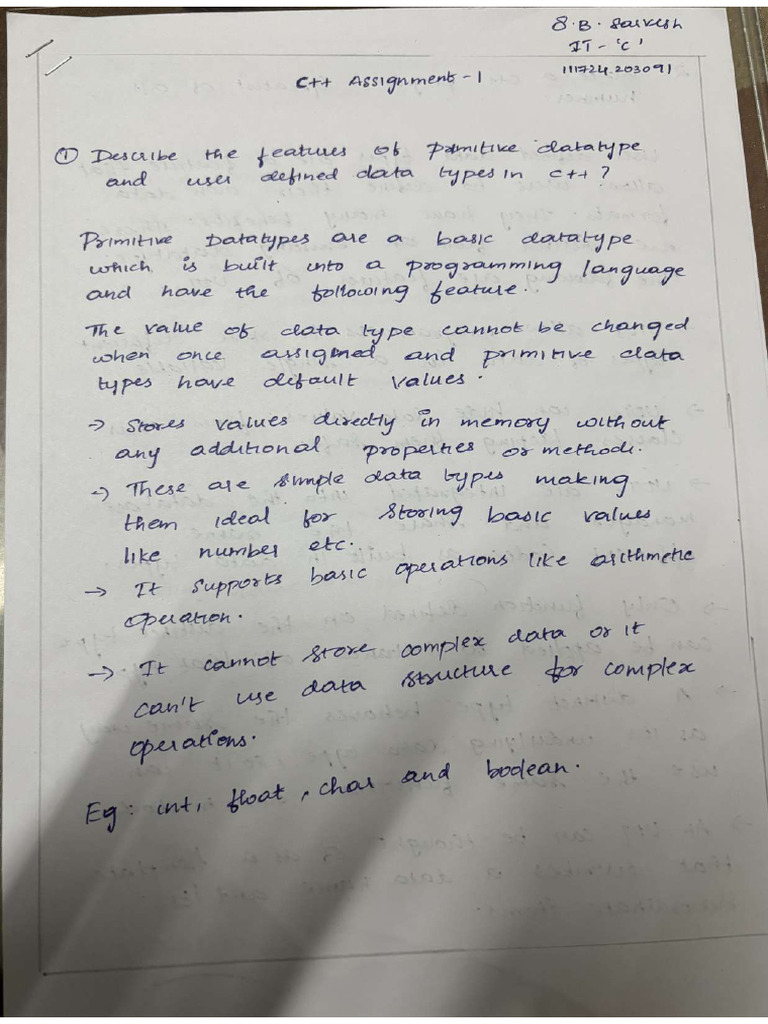 S.B. Sarvesh
IT - 'C'
111724203091
C++ Assignment - 1
① Describe the features of primitive datatype
and user defined data types in C++?
Primitive Datatypes are a basic datatype
which is built into a programming language
and have the following feature..
The value of data type cannot be changed
when once assigned and primitive data
types have default values.
→ Stores values directly in memory without
any additional properties or methods.
→ These are simple data types making
them ideal for storing basic values
like number etc.
→ It supports basic operations like arithmetic
operation.
→ It cannot store complex data or it
can't use data structure for complex
operations.
Eg: int, float, char and boolean.